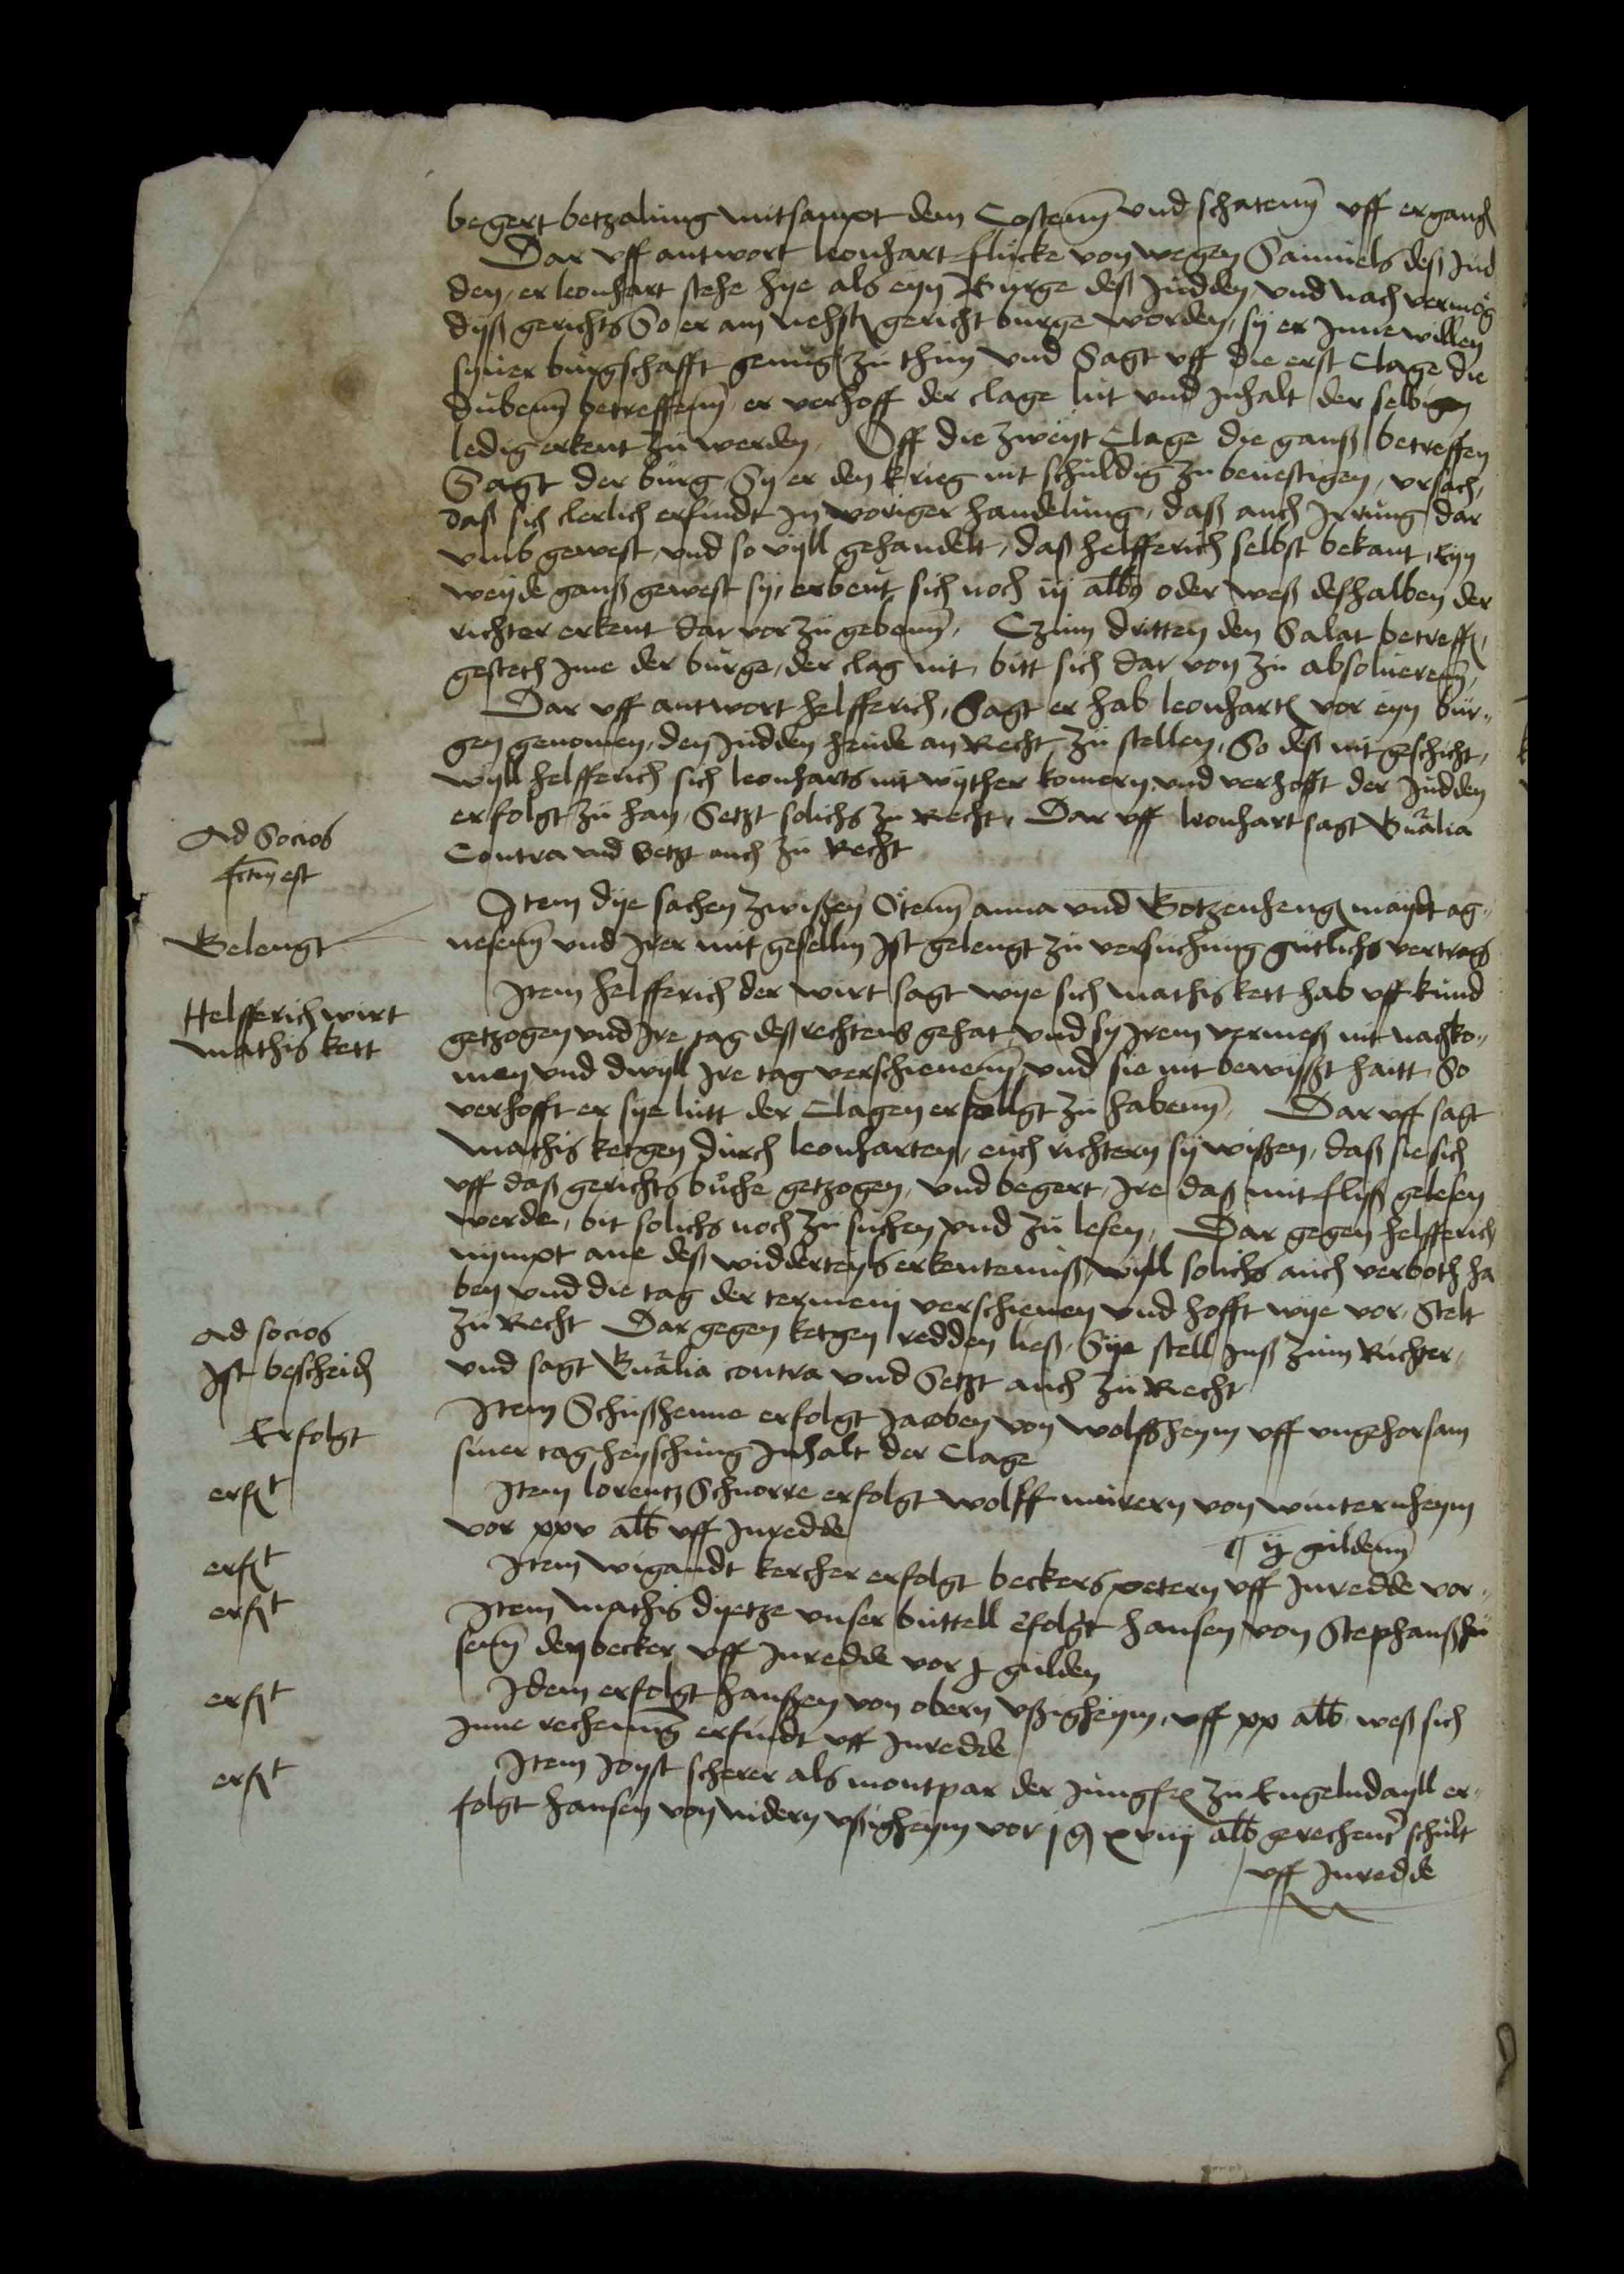 begert betzalung mitsampt dem Costenn und schatenn uff ergangen
Dar uff antwort leonhart flucke von wegen Samuels deß Jud
den, er leonhart stehe hye als eyn Burge deß Judden und nach vermog
dyß gerichts So er am nehsten gericht burge worden, sy er Inne willen
syner burgschafft genug zu thun und Sagt uff die erst Clage die
dubenn betreffenn er verhoff der clage lut und Inhalt der selbigen
ledig erkent zu werden, Off die zweyt Clage die ganß betreffen
Sagt der burg Sy er den krieg nit schuldig zu bevestigen, ursach,
daß sich clerlich erfindt in voriger handelung, daß auch Irrung dar
umb gewest, und so vyll gehandelt, daß helfferich selbst bekant, Eyn
weyde ganß gewest sy, erbeut sich noch iij albus oder weß deßhalben der
richter erkent dar vor zu gebenn, Czum dritten den Salat betreffen,
gestech Ime der burge, der clag nit, bitt sich dar von zu absoluerenn,
Dar uff antwort helfferich, Sagt er hab leonharten vor eyn bur-
gen genomen, den Judden heude an Recht zu stellen, So deß nit geschicht,
wyll helfferich sich leonharts nit wyther komern, und verhofft der Judden
erfolgt zu han, Setzt solichs zu Recht, Dar uff leonhart sagt Gnralia
Contra und Setzt auch zu Recht
Ad Socios
fctm est
Item dye sachen zwißen Otenn anna und Gotzenhengen maydt ag-
nesenn und Irer mit gesellin Ist gelengt zu versuchung gutlichs vertrags
Gelengt
Item helfferich der wirt sagt wye sich mathis kett hab uff kund
getzogen und Ire tag deß rechtens gehat und sy Irem vermeß nit nachko-
men und dwyll Ire tag verschienenn und sie nit bewyßt haitt, So
verhofft er sye lutt der Clagen erfollgt zu habenn, Dar uff sagt
Helfferich wirt
mathis kett
mathis ketgen durch leonharten, euch richtern sy wißen, daß sie sich
uff daß gerichts buche getzogen, und begert, Ire daß mit fliß gelesen
werde, bit solichs noch zu suchen und zu lesen, Dar gegen helfferich
nympt ane deß widderteyls erkentenniß, wyll solichs auch verboth ha
ben und die tag der termeny verschienen und hofft wye vor, Stelt
zu Recht Dar gegen ketgen redden ließ, Sye stell Inß zum Richter,
und sagt Gnralia contra und Setzt auch zu Recht
Ad socios
Ist bescheid
Item Schußhenne erfolgt Jacoben von wolffßheym uff ungehorsam
siner tag heyschung Inhalt der Clage
Erfolgt
Item lorentz Schnorre erfolgt wolff murern von winternheym
vor xxv alb uff Inredde
erft
ij guldenn
Item wigandt kercher erfolgt beckers petern uff Inredde vor-
erft
Item mathis dyetze unser buttell efolgt hansen von Stephanßhu
senn den becker uff Inredde vor j gulden
erft
Idem erfolgt hanßen von obern ußigheym, uff xx alb weß sich
Inne rechenung erfindt uff Inredde
erft
Item Joyst scherer als montpar der Jungfren zu Engelndayll er-
folgt hansen von nidern ußigheym vor j g xviij alb gerechenter schult
uff Inredde
erft